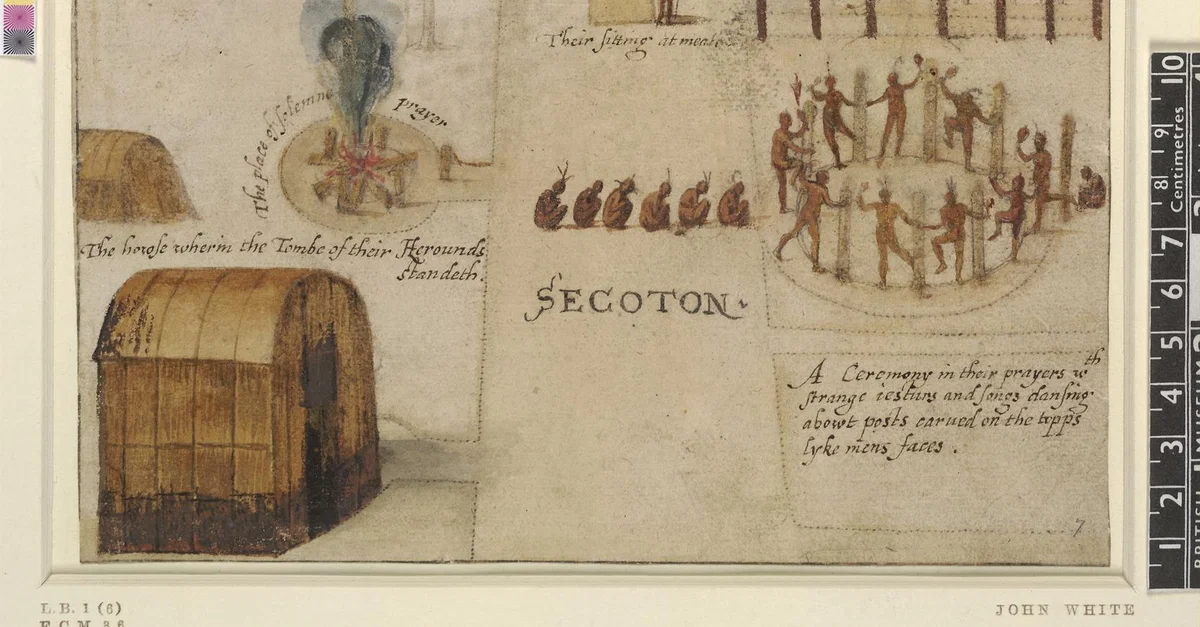 Their sitting at meate
The place of solemne prayer
The howse wherin the Tombe of their Herounds
standeth.
SECOTON.
A Ceremony in their prayers wth
strange iesturs and songs dansing
abowt posts carued on the topps
lyke mens faces.
7
L.B. 1 (6)
JOHN WHITE
10
9
8
7
6
5
4
3
2
1
Centimetres
BRITISH MUSEUM